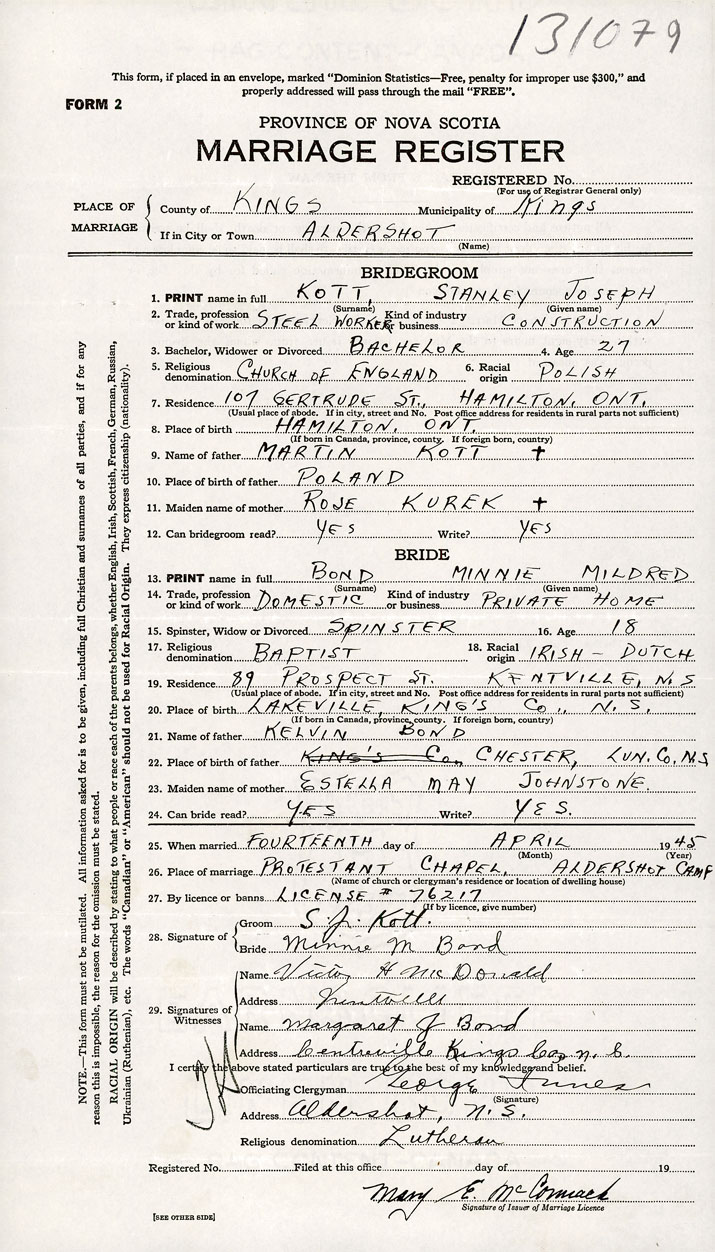 131079
This form, if placed in an envelope, marked "Dominion Statistics—Free, penalty for improper use $300," and
properly addressed will pass through the mail "FREE".
FORM 2
PROVINCE OF NOVA SCOTIA
MARRIAGE REGISTER
REGISTERED No.
(For use of Registrar General only)
PLACE OF MARRIAGE
County of KINGS Municipality of Kings
If in City or Town ALDERSHOT
(Name)
BRIDEGROOM
1. PRINT name in full KOTT, STANLEY JOSEPH
(Surname) (Given name)
2. Trade, profession or kind of work STEEL WORKER Kind of industry or business CONSTRUCTION
3. Bachelor, Widower or Divorced BACHELOR 4. Age 27
5. Religious denomination CHURCH OF ENGLAND 6. Racial origin POLISH
7. Residence 107 GERTRUDE ST., HAMILTON, ONT.
(Usual place of abode. If in city, street and No. Post office address for residents in rural parts not sufficient)
8. Place of birth HAMILTON, ONT.
(If born in Canada, province, county. If foreign born, country)
9. Name of father MARTIN KOTT +
10. Place of birth of father POLAND
11. Maiden name of mother ROSE KUREK +
12. Can bridegroom read? YES Write? YES
BRIDE
13. PRINT name in full BOND MINNIE MILDRED
(Surname) (Given name)
14. Trade, profession or kind of work DOMESTIC Kind of industry or business PRIVATE HOME
15. Spinster, Widow or Divorced SPINSTER 16. Age 18
17. Religious denomination BAPTIST 18. Racial origin IRISH - DUTCH
19. Residence 89 PROSPECT ST. KENTVILLE, N.S
(Usual place of abode. If in city, street and No. Post office address for residents in rural parts not sufficient)
20. Place of birth LAKEVILLE, KING'S Co., N.S.
(If born in Canada, province, county. If foreign born, country)
21. Name of father KELVIN BOND
22. Place of birth of father KING'S Co, CHESTER, LUN. Co, N.S
23. Maiden name of mother ESTELLA MAY JOHNSTONE
24. Can bride read? YES Write? YES.
25. When married FOURTEENTH day of APRIL 1945
(Month) (Year)
26. Place of marriage PROTESTANT CHAPEL, ALDERSHOT CAMP
(Name of church or clergyman's residence or location of dwelling house)
27. By licence or banns LICENSE # 76217
(If by licence, give number)
28. Signature of
Groom S. J. Kott.
Bride Minnie M Bond
29. Signatures of Witnesses
Name Victor H McDonald
Address
Name Margaret J Bond
Address Centreville Kings Co, N. S.
I certify the above stated particulars are true to the best of my knowledge and belief.
Officiating Clergyman George Innes
(Signature)
Address Aldershot, N.S.
Religious denomination Lutheran
Registered No. Filed at this office day of 19
Mary E. McCormack
Signature of Issuer of Marriage Licence
[SEE OTHER SIDE]
NOTE.—This form must not be mutilated. All information asked for is to be given, including full Christian and surnames of all parties, and if for any
reason this is impossible, the reason for the omission must be stated.
RACIAL ORIGIN will be described by stating to what people or race each of the parents belongs, whether English, Irish, Scottish, French, German, Russian,
Ukrainian (Ruthenian), etc. The words "Canadian" or "American" should not be used for Racial Origin. They express citizenship (nationality).